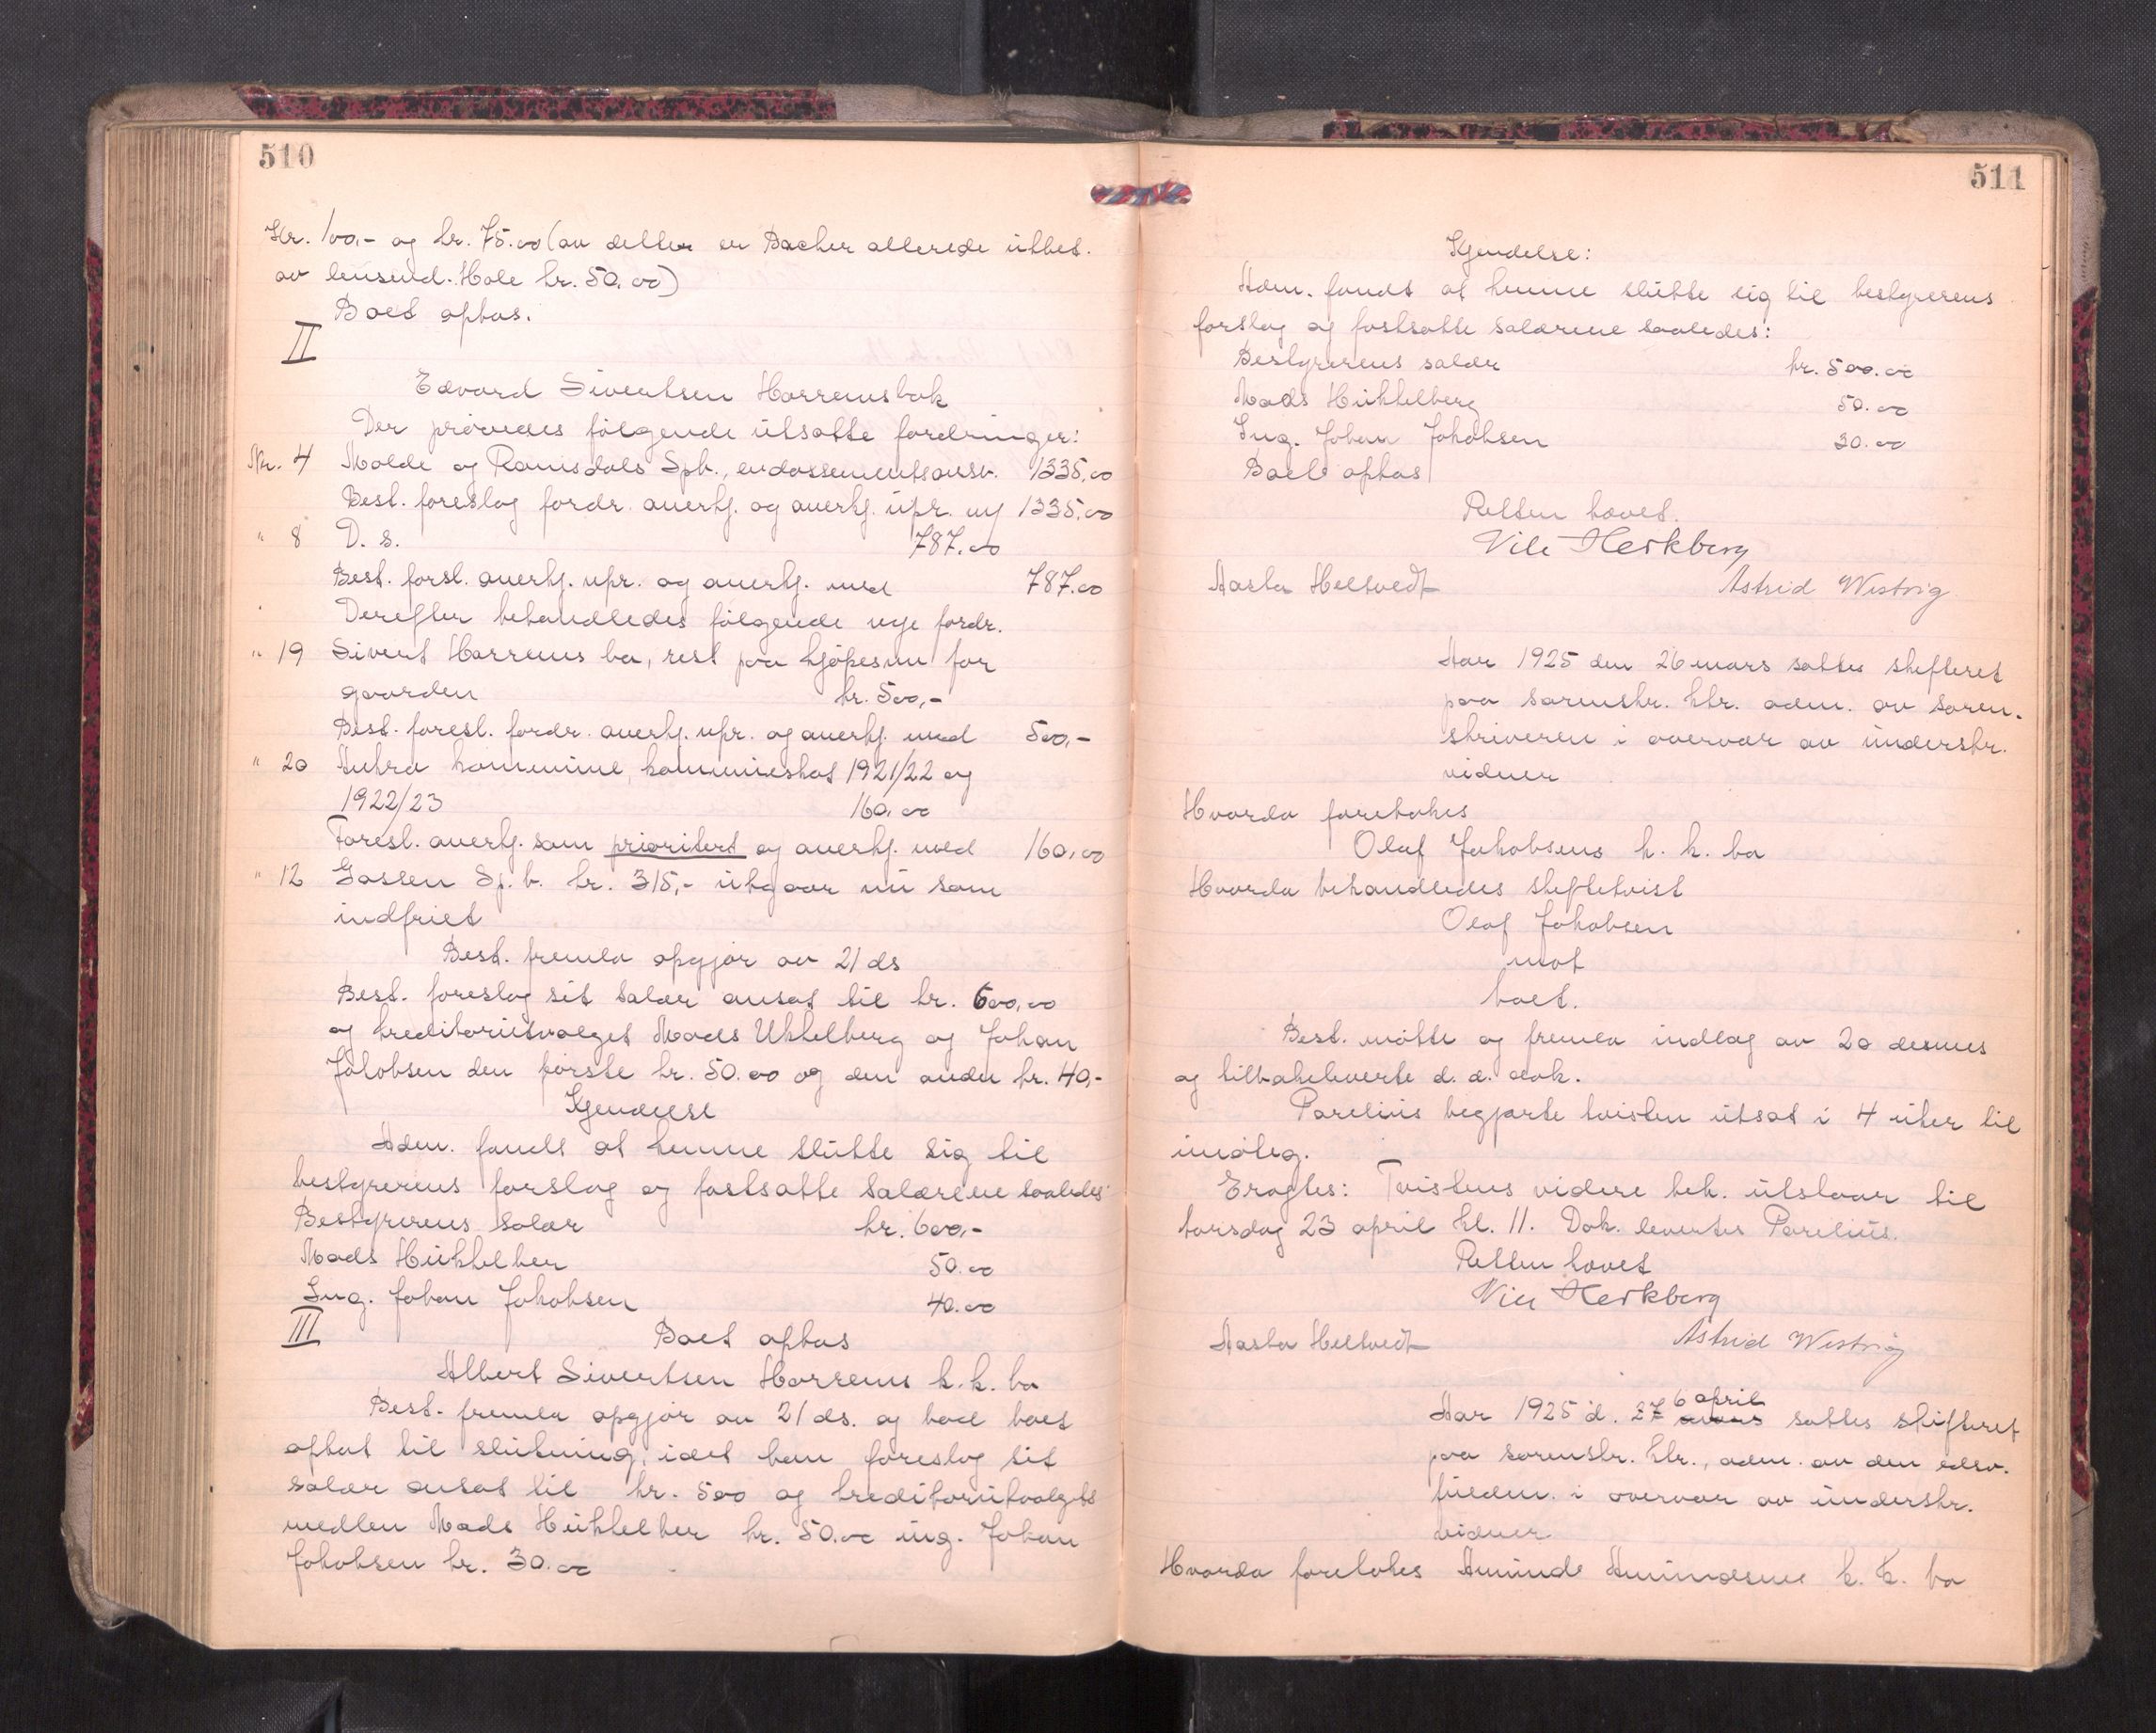 510
Kr. 100,- og kr. 75.00 (av dette er Bacher allerede utbet.
av lensmd. Hole kr. 50.00)
Boet optas.
II
Edvard Sivertsen Harremsbak
Der prøvedes følgende utsatte fordringer:
Nr. 4 Molde og Romsdals Spb., endossementsansv. 1335,00
Best. foreslog fordr. anerkj. og anerkj. upr. m/ 1335.00
" 8 D. s. 787.00
Best. forsl. anerkj. upr. og anerkj. med 787.00
Derefter behandledes følgende nye fordr.
" 19 Sivert Harrems bo, rest paa kjøpesum for
gaarden kr. 500,-
Best. foresl. fordr. anerkj. upr. og anerkj. med 500,-
" 20 Aukra kommune, kommuneskat 1921/22 og
1922/23 160.00
Foresl. anerkj. som prioritert og anerkj. med 160,00
" 12 Gossen Sp.b. kr. 315,- utgaar nu som
indfriet
Best. fremla opgjør av 21 ds
Best. foreslog sit salær ansat til kr. 600,00
og kreditorutvalget Mads Ukkelberg og Johan
Jakobsen den første kr. 50.00 og den anden kr. 40,-
Kjendelse
Adm. fandt at kunne slutte sig til
bestyrerens forslag og fastsatte salærene saaledes:
Bestyrerens salær kr. 600,-
Mads Hukkelber 50.00
Ing. Johan Jakobsen 40.00
III
Boet optas
Albert Sivertsen Harrems k.k. bo
Best. fremla opgjør av 21 ds. og bad boet
optat til slutning, idet han foreslog sit
salær ansat til kr. 500 og kreditorutvalgets
medlem Mads Hukkelber kr. 50.00 ing. Johan
Jakobsen kr. 30.00
511
Kjendelse:
Adm. fandt at kunne slutte sig til bestyrerens
forslag og fastsatte salærene saaledes:
Bestyrerens salær kr. 500.00
Mads Hukkelberg 50.00
Ing. Johan Jakobsen 30.00
Boet optas
Retten hævet.
Vilh Herkberg
Aasta Heltvedt Astrid Westvig
Aar 1925 den 26 mars sattes skifteret
paa sorenskr. ktr. adm. av soren-
skriveren i overvær av underskr.
vidner
Hvorda foretokes
Olaf Jakobsens k. k. bo
Hvorda behandledes skiftetvist
Olaf Jakobsen
mot
boet.
Best. møtte og fremla indlæg av 20 dennes
og tilbakeleverte d. d. dok.
Parelius begjærte tvisten utsat i 4 uker til
imøteg.
Eragtes: Tvistens videre beh. utstaar til
torsdag 23 april kl. 11. Dok. levertes Parelius.
Retten hævet
Vilh Herkberg
Aasta Heltvedt Astrid Westvig
Aar 1925 d. 27 mars 6 april sattes skifteret
paa sorenskr. ktr., adm. av den edsv.
fuldm. i overvær av underskr.
vidner
Hvorda foretokes Amund Amundsens k. k. bo